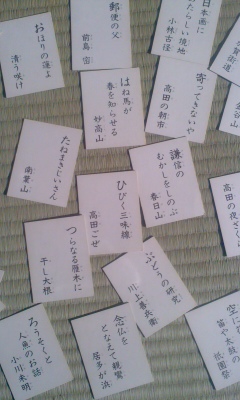 郵便の父
前島 密
日本画に
あたらしい境地
小林古径
おほりの蓮よ
清う咲け
はね馬が
春を知らせる
妙高山
寄ってきないや
高田の朝市
たねまきじいさん
南葉山
ひびく三味線
高田ごぜ
謙信の
むかしをしのぶ
春日山
高田の夜ざく
つらなる雁木に
干し大根
ぶどうの研究
川上善兵衛
ろうそくと
人魚のお話
小川未明
念仏を
となえて親鸞
居多が浜
空に
笛や太鼓の
祇園祭